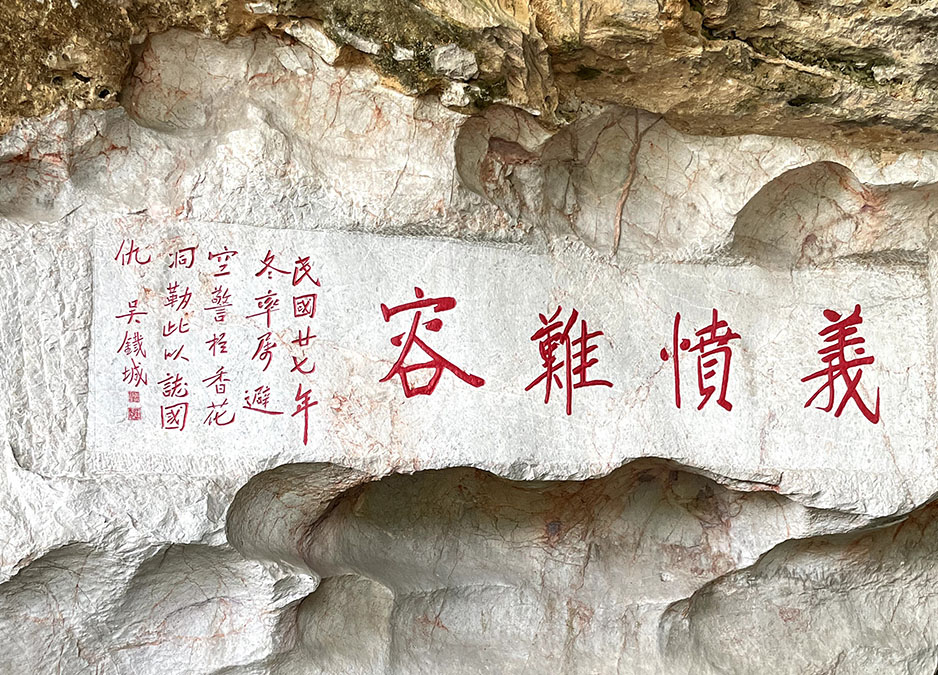 義憤難容
民國廿七年
冬率屬避
空警於香花
洞勒此以誌國
仇 吳鐵城